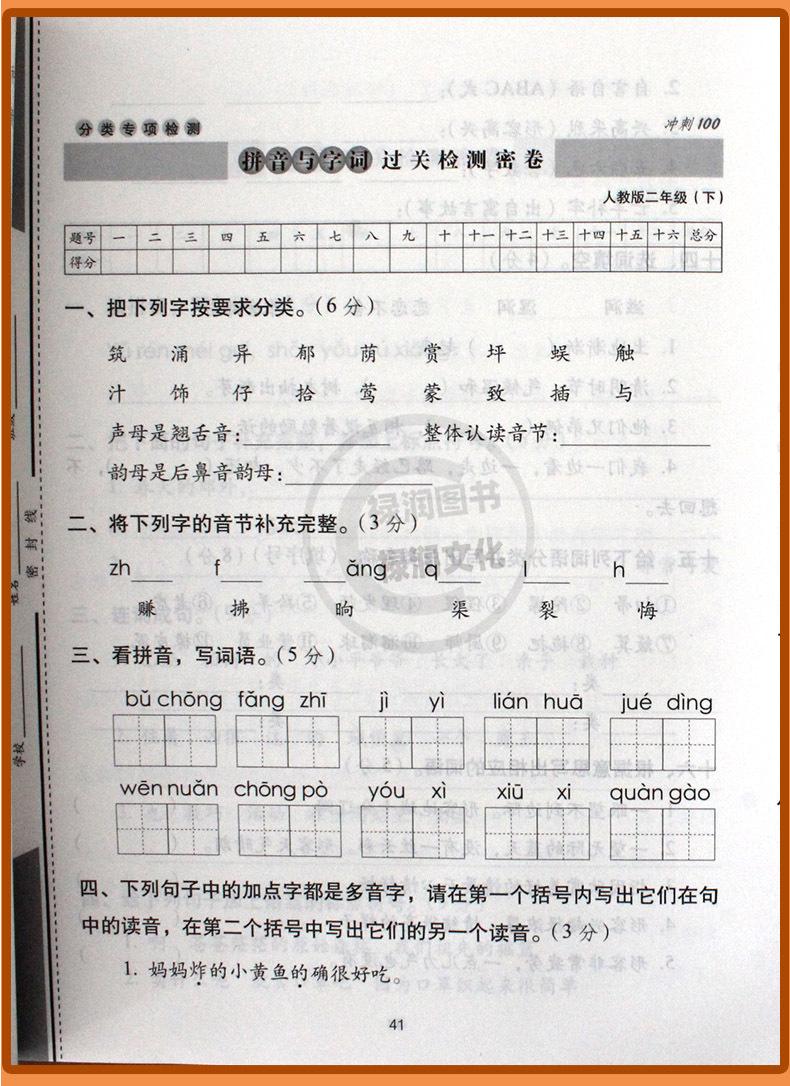 分类专项检测
冲刺100
拼音与字词过关检测密卷
人教版二年级（下）
题号 一 二 三 四 五 六 七 八 九 十 十一 十二 十三 十四 十五 十六 总分
得分
一、把下列字按要求分类。（6分）
筑 涌 异 郁 荫 赏 坪 蜈 触
汁 饰 仔 拾 莺 蒙 致 插 与
声母是翘舌音：____________ 整体认读音节：____________
韵母是后鼻音韵母：____________
二、将下列字的音节补充完整。（3分）
zh____ f____ ____ǎng q____ l____ h____
赚 拂 晌 渠 裂 悔
三、看拼音，写词语。（5分）
bǔ chōng fǎng zhī jì yì lián huā jué dìng
wēn nuǎn chōng pò yóu xì xiū xi quàn gào
四、下列句子中的加点字都是多音字，请在第一个括号内写出它们在句
中的读音，在第二个括号中写出它们的另一个读音。（3分）
1. 妈妈炸的小黄鱼的确很好吃。
41
学校
姓名
班级
密封线
禄润图书
禄润文化